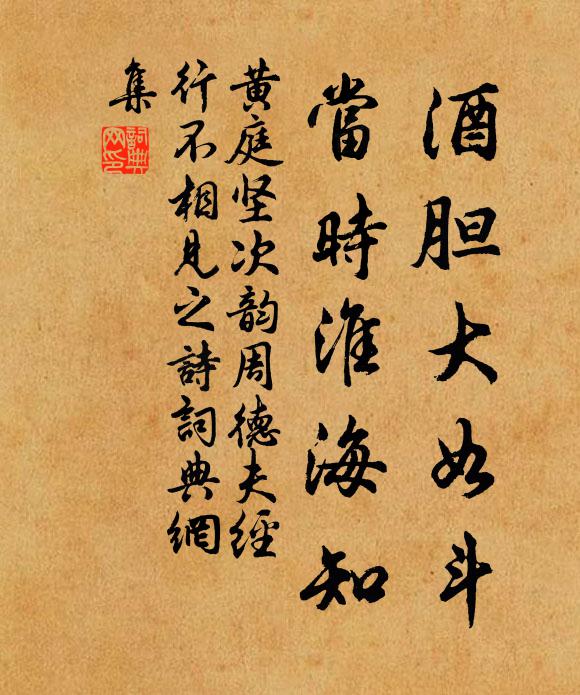 酒胆大如斗
當時淮海知
黄庭坚次韵周德夫經
行不相見之詩詞典網
集
詞典网印